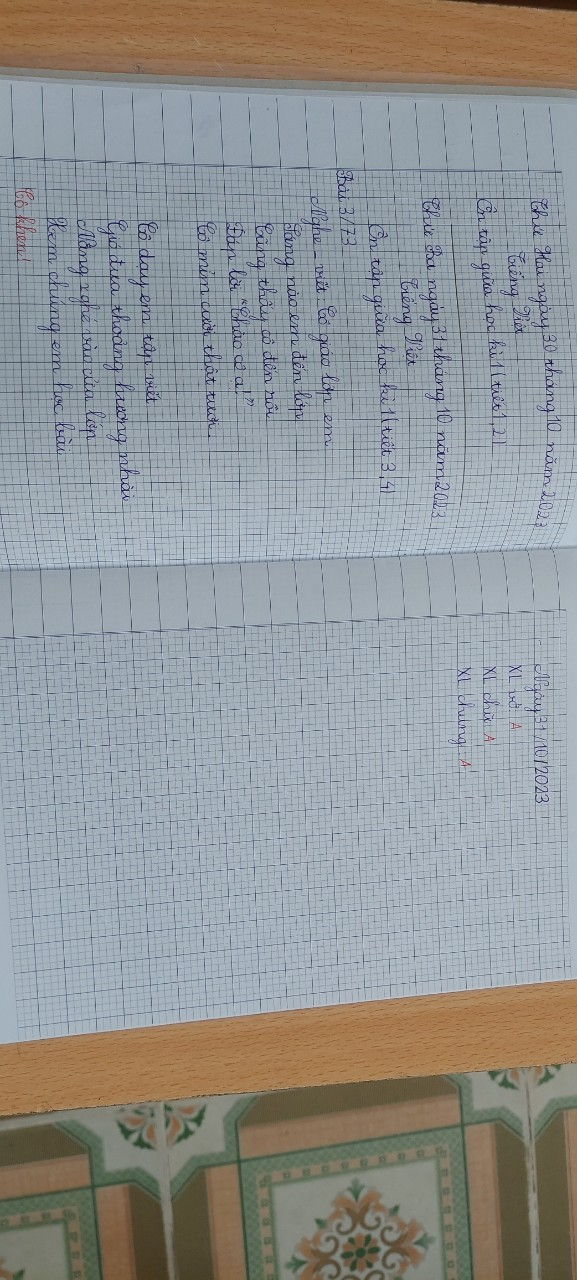 Thứ Hai ngày 30 tháng 10 năm 2023
Tiếng Việt
Ôn tập giữa học kì 1 (tiết 1,2)
Thứ Ba ngày 31 tháng 10 năm 2023
Tiếng Việt
Ôn tập giữa học kì 1 (tiết 3,4)
Bài 3/73
Nghe - viết Cô giáo lớp em
Sáng nào em đến lớp
Cũng thấy cô đến rồi
Đáp lời "Chào cô ạ!"
Cô mỉm cười thật tươi.
Cô dạy em tập viết
Gió đưa thoảng hương nhài
Nắng nghé vào cửa lớp
Xem chúng em học bài
Cô khen!
Ngày 31/10/2023
XL vở: A
XL chữ: A
XL chung: A